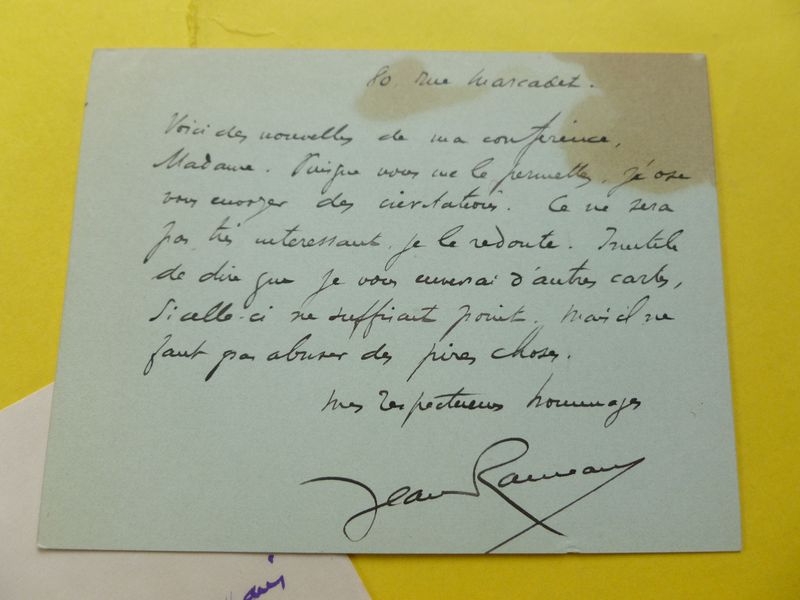 80, rue Marcadet.
Voici des nouvelles de ma conférence,
Madame. Puisque vous me le permettez, j'ose
vous envoyer des invitations. Ce ne sera
pas très intéressant, je le redoute. Inutile
de dire que je vous enverrai d'autres cartes,
si celle-ci ne suffisait point. Mais il ne
faut pas abuser des pires choses.
Mes respectueux hommages
Jean Rameau